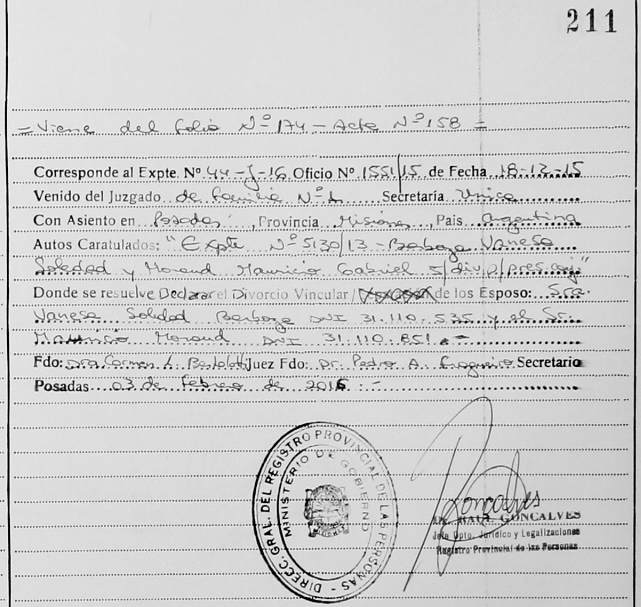 211
= Viene del folio Nº 174 - Acta Nº 158 =
Corresponde al Expte. Nº 44-J-16 Oficio Nº 1551/15 de Fecha 18-12-15
Venido del Juzgado de Familia Nº 1 Secretaría Unica
Con Asiento en Posadas, Provincia Misiones, País Argentina
Autos Caratulados: "Expte Nº 5130/13 - Barboza Vanesa
Soledad y Moraud Mauricio Gabriel s/div.p/pres.conj"
Donde se resuelve Declarar el Divorcio Vincular / de los Esposo: Sra.
Vanesa Soledad Barboza DNI 31.110.535 y el Sr.
Mauricio Moraud DNI 31.110.851 . -
Fdo: Dra Carmen Juez Fdo: Dr. Pedro A. Secretario
Posadas 03 de Febrero de 2016 : -
DIRECC. GRAL. DEL REGISTRO PROVINCIAL DE LAS PERSONAS -
MINISTERIO DE GOBIERNO
Goncalves
Dr. RAUL GONCALVES
Jefe Dpto. Jurídico y Legalizaciones
Registro Provincial de las Personas